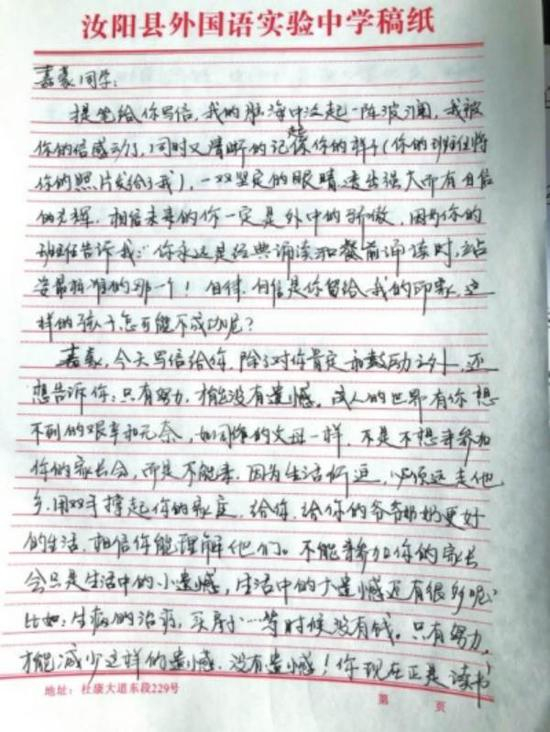 汝阳县外国语实验中学稿纸
嘉豪同学:
提笔给你写信,我的脑海中泛起一阵波澜,我被
你的信感动了,同时又清晰的记起你的样子(你的班主任将
你的照片发给了我),一双坚定的眼睛透出强大而有自信
的光辉,相信未来的你一定是外中的骄傲,因为你的
班主任告诉我:"你永远是经典诵读和餐前诵读时,站
姿最标准的那一个!自律、自信是你留给我的印象,这
样的孩子怎可能不成功呢?
嘉豪,今天写信给你,除了对你肯定和鼓励之外,还
想告诉你:只有努力,才能没有遗憾。成人的世界有你想
不到的艰辛和无奈,如同你的父母一样,不是不想来参加
你的家长会,而是不能来。因为生活所迫,必须远走他
乡,用双手撑起你的家庭,给你、给你的爷爷奶奶更好
的生活,相信你能理解他们。不能来参加你的家长
会只是生活中的小遗憾,生活中的大遗憾还有很多呢?
比如:生病的治病,买房子……等时候没有钱。只有努力,
才能减少这样的遗憾,没有遗憾!你现在正是读书
地址:杜康大道东段229号
第 页